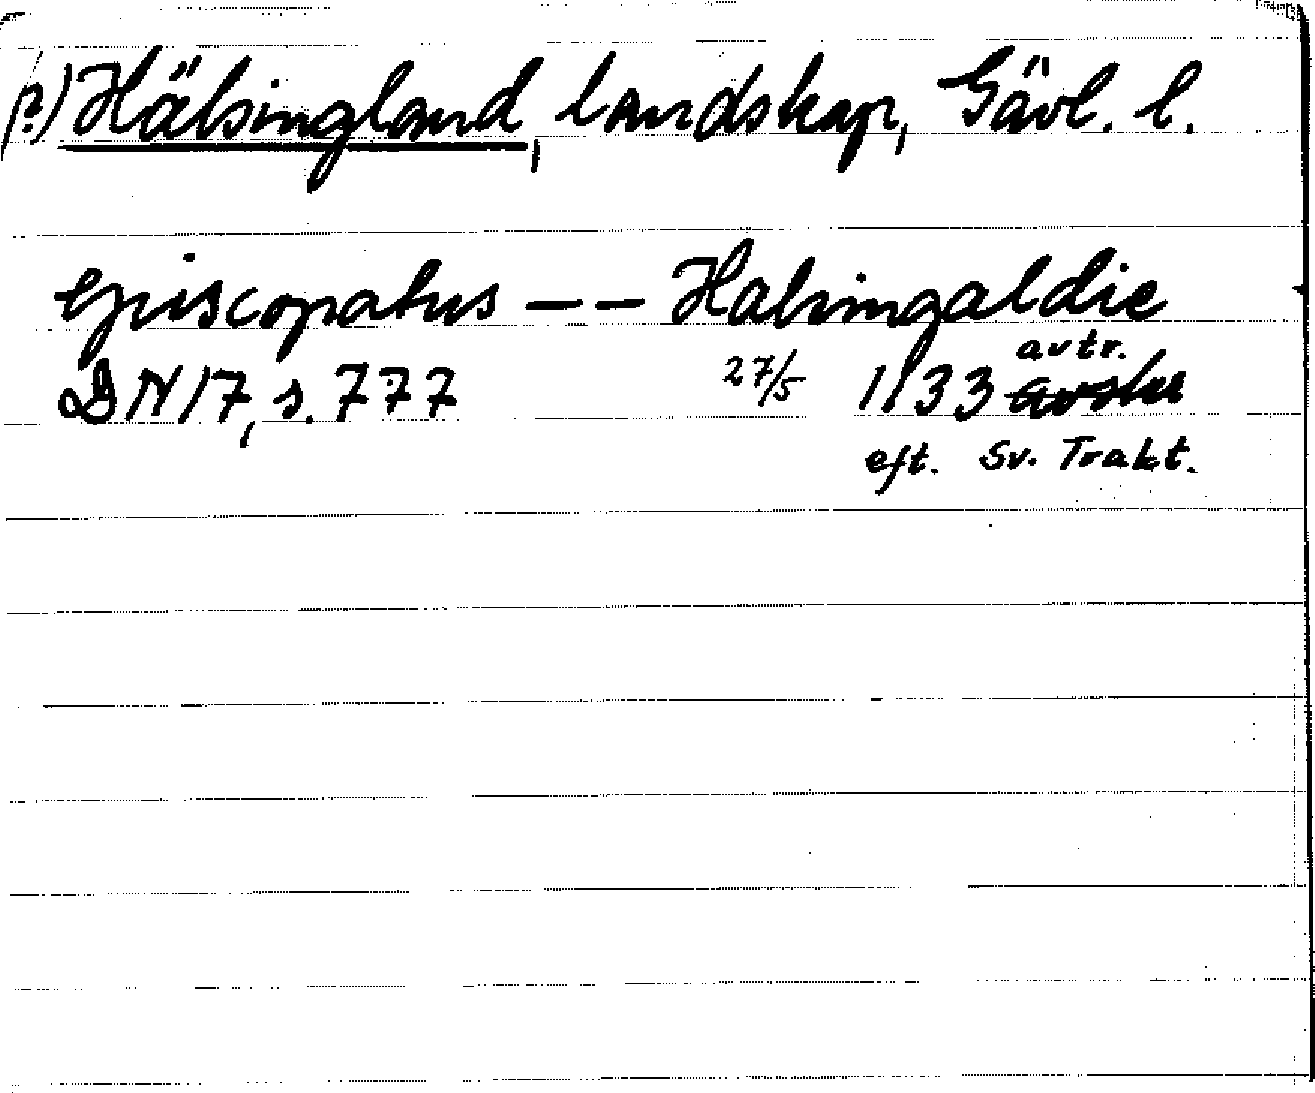 (?) Hälsingland, landskap, Gävl. l.
episcopatus – – Halsingaldie
DN 17, s. 777 27/5 1133 avtr.
eft. Sv. Trakt.